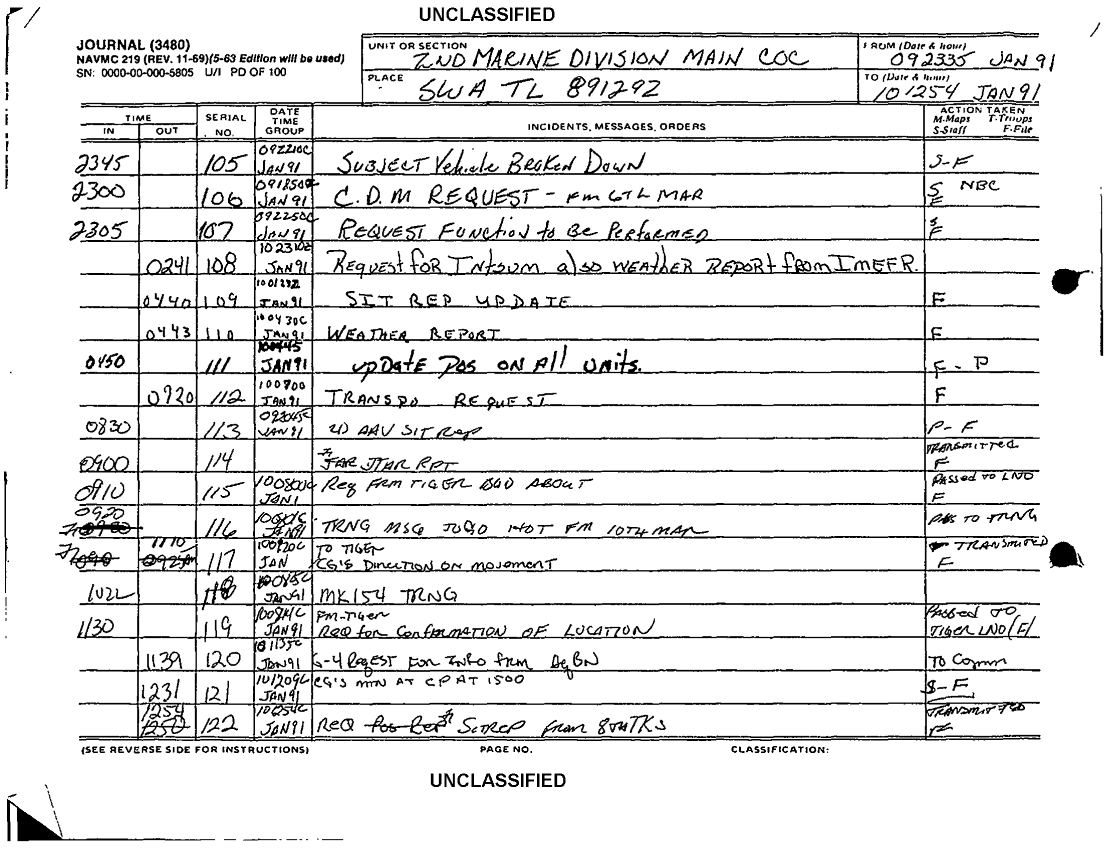 UNCLASSIFIED
JOURNAL (3480)
NAVMC 219 (REV. 11-69)(5-63 Edition will be used)
SN: 0000-00-000-5805 U/I PD OF 100
UNIT OR SECTION
2ND MARINE DIVISION MAIN COC
PLACE
SWA TL 891292
FROM (Date & hour)
092335 JAN 91
TO (Date & hour)
101254 JAN 91
TIME
IN OUT
SERIAL NO.
DATE TIME GROUP
INCIDENTS, MESSAGES, ORDERS
ACTION TAKEN
M-Maps T-Troops
S-Staff F-File
2345 105 092210C JAN 91 SUBJECT Vehicle Broken Down S-F
2300 106 JAN 91 C.D.M REQUEST - Fm 6TL MAR S F NBC
2305 107 092250C JAN 91 REQUEST Function to Be Performed S F
0241 108 JAN 91 Request for Intsum also WEATHER REPORT from IMEFR.
0440 109 JAN 91 SIT REP UPDATE F
0443 110 100430C JAN 91 WEATHER REPORT F
0450 111 100445 JAN 91 upDate Pos on All units. F-P
0920 112 100700 JAN 91 TRANSPO REQUEST F
0830 113 JAN 91 2D AAV SIT Rep P-F
0900 114 JTAR RPT TRANSMITTED F
0910 115 100800C JAN 1 Req FRM TIGER BGD ABOUT PASSED TO LNO F
0920 116 JAN 91 TRNG MSG FM 10TH MAR PASS TO TRNG
1110 117 100920C JAN TO TIGER
CG'S DIRECTION ON MOVEMENT TRANSMITTED F
1022 118 JAN 91 MK154 TRNG
1130 119 JAN 91 FM-TIGER
REQ for Confirmation OF LOCATION PASSED TO TIGER LNO/F/
1139 120 101135C JAN 91 G-4 Reqest For Info frm BN To Comm
1231 121 101209C JAN 91 CG'S MTN AT CP AT 1500 S-F
1254 1250 122 JAN 91 REQ Pos Rep SITREP From 8thTKS TRANSMITTED F
(SEE REVERSE SIDE FOR INSTRUCTIONS) PAGE NO. CLASSIFICATION:
UNCLASSIFIED